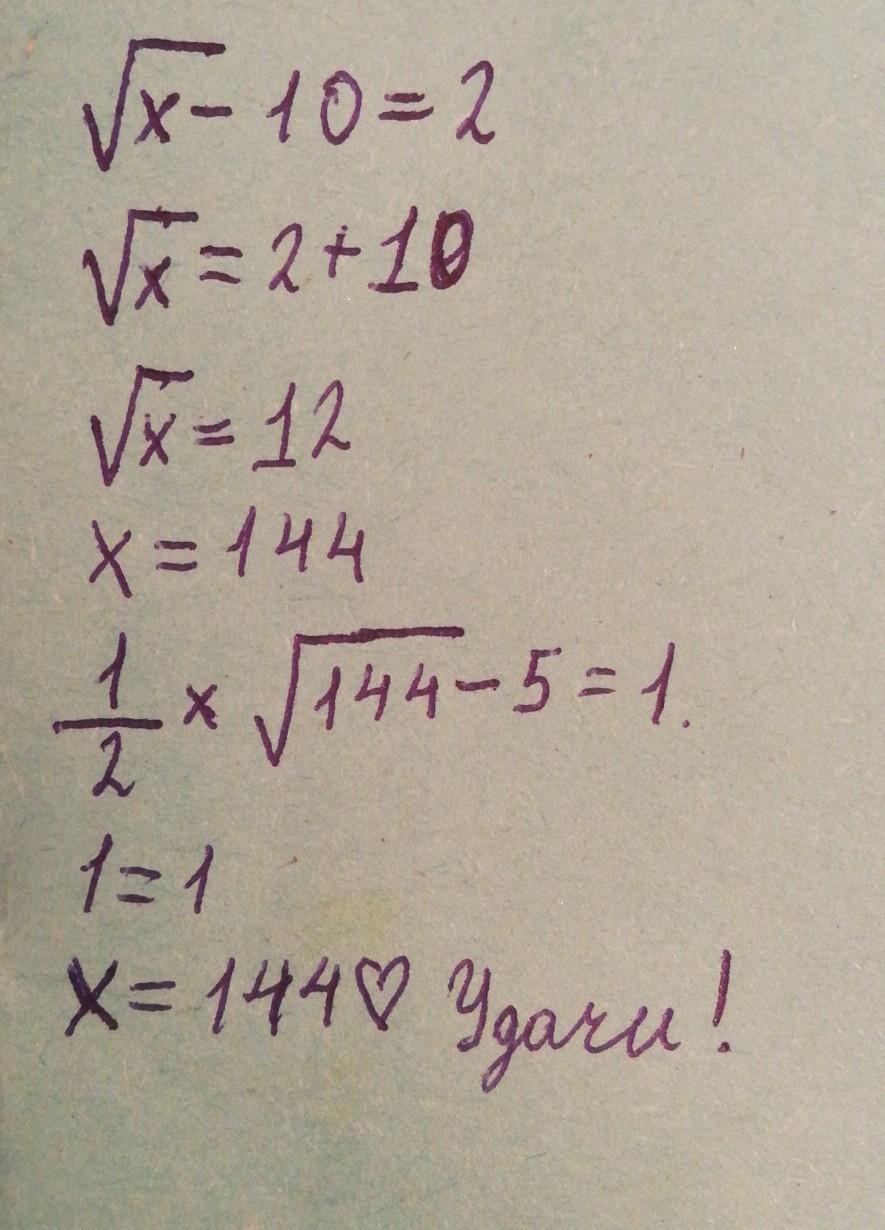 √x - 10 = 2
√x = 2 + 10
√x = 12
x = 144
1/2 × √144 - 5 = 1.
1 = 1
x = 144♡ Удачи!